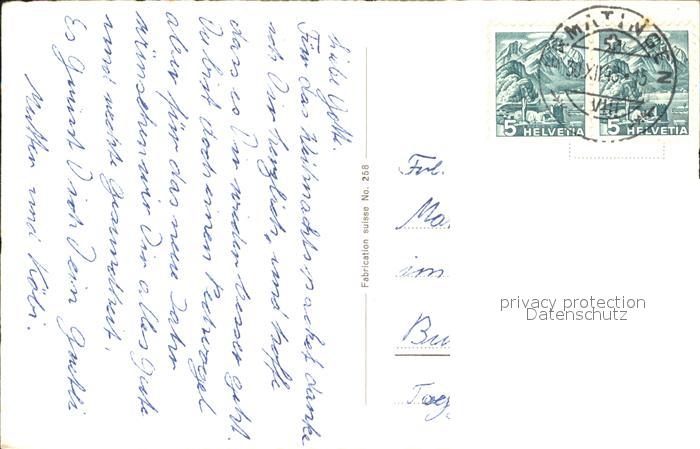 Liebe Gotte.
Für das Weihnachtspacket danke
ich Dir herzlich, und hoffe
dass es Dir wieder besser geht.
Du bist doch einen Pechvogel
aber für das neue Jahr
wünschen wir Dir alles Gute
und rechte Gesundheit.
Es grüsst Dich Dein Göttli
Mutter und Köbi.
Fabrication suisse No. 258
5 HELVETIA
5 HELVETIA
ERMATINGEN
30.XII.
VIII
Frl.
Ma
im
Bu
Togg
privacy protection
Datenschutz